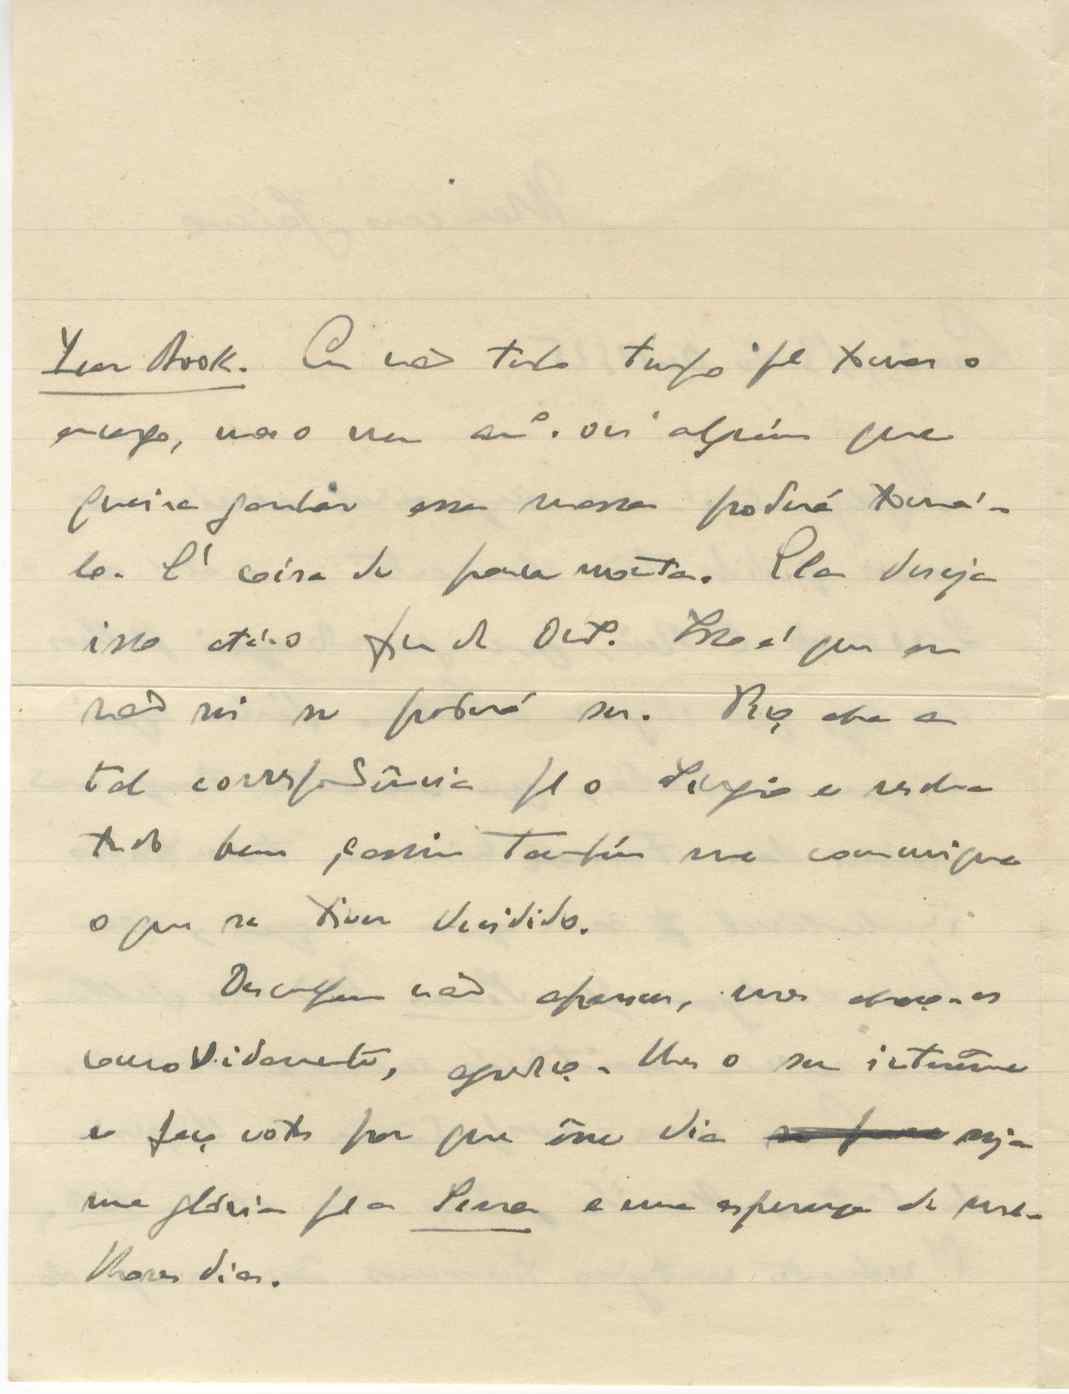 Year Book. Eu não tenho tempo p.ª tomar o
encargo, mas o meu am.º ou alguém que
queira ganhar essa massa poderá tomá-
lo. É coisa de pouca monta. Ela deseja
isso até ao fim de Out. Isso é que eu
não sei se poderá ser. Peço abra a
tal correspondência p.ª o Sérgio e resolva
tudo bem, e assim também me communique
o que se tiver decidido.
Desculpem não aparecer, mas abraço-os
comovidamente, agradeço-lhes o seu interesse
e faço votos por que êsse dia seja
uma glória p.ª a Seara e uma esperança de me-
lhores dias.